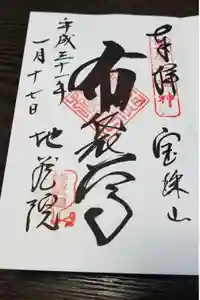 奉拝
宝珠山
布袋尊
平成三十一年
一月十七日
地蔵院